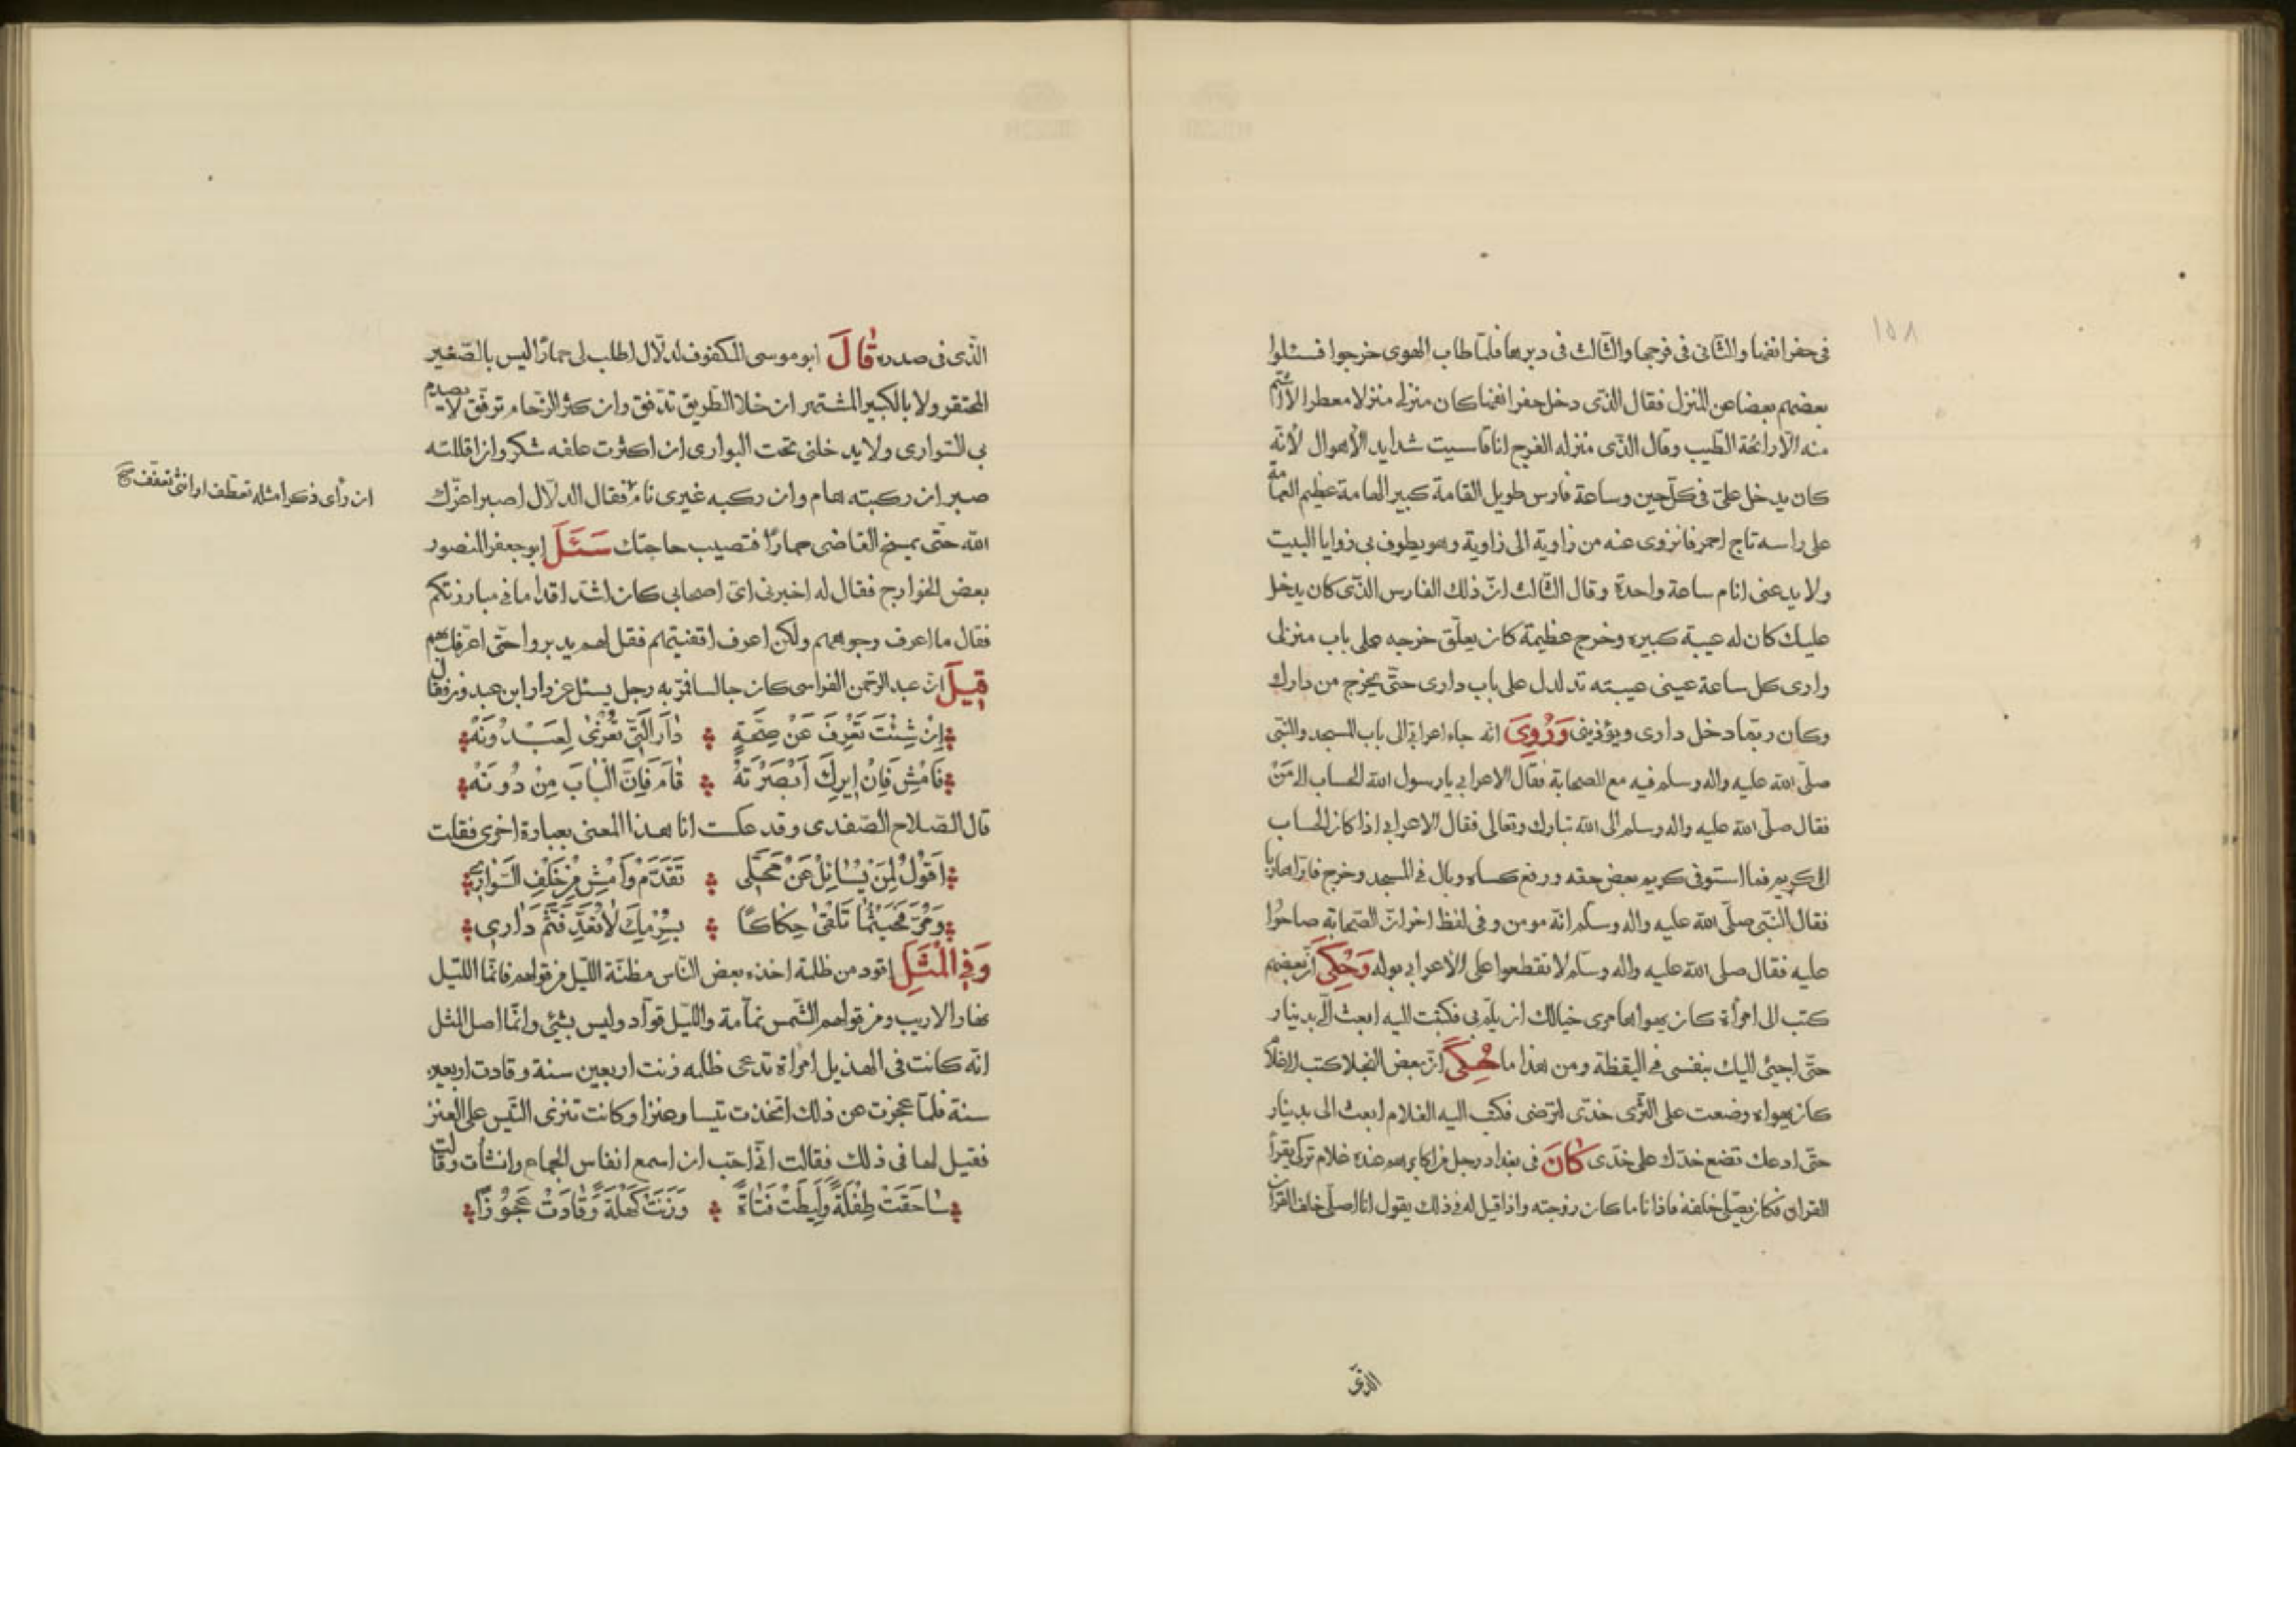 ١٥٨
فى حفر انفها والثانى فى فرجها والثالث فى دبرها فلمّا طاب الهوى خرجوا فسئلوا
بعضهم بعضا عن المنزل فقال الذّى دخل حفر انفها كان منزلى منزلا معطرا لا اشتم
منه الّا رائحة الطّيب وقال الذّى منزله الفرج انا قاسيت شدايد الأهوال لأنّه
كان يدخل علىّ فى كلّ حين وساعة فارس طويل القامة كبير الهامة عظيم العمامة
على راسه تاج احمر فانزوى عنه من زاوية الى زاوية وهو يطوف بى زوايا البيت
ولا يدعنى انام ساعة واحدة وقال الثّالث انّ ذلك الفارس الذّى كان يدخل
عليك كان له عيبة كبيره وخرج عظيمة كان يعلّق خرجه على باب منزلى
وارى كل ساعة عينى عيبته تدلدل على باب دارى حتّى يخرج من دارك
وكان ربّما دخل دارى ويؤذينى وَرُوِىَ انّه جاء اعرابىّ الى باب المسجد والنّبى
صلّى الله عليه واله وسلم فيه مع الصحابة فقال الاعرابى يا رسول الله الحساب الى مَنْ
فقال صلّى الله عليه واله وسلم الى الله تبارك وتعالى فقال الاعرابى اذا كان الحساب
الى كريم فما استوفى كريم بعض حقه ورفع كساه وبال فى المسجد وخرج فارّا هاربا
فقال النّبى صلّى الله عليه واله وسلّم انّه مومن وفى لفظ اخر انّ الصّحابة صاحوا
عليه فقال صلى الله عليه واله وسلّم لا تقطعوا على الأعرابى بوله وَحُكِىَ انّ بعضهم
كتب الى امرأة كان يهواها مرى خيالك ان يلمّ بى فكتبت اليه ابعث الىّ بدينار
حتّى اجيئ اليك بنفسى فى اليقظة ومن هذا ما حُكِىَ انّ بعض البخلا كتب الى غلام
كان يهواه وضعت على الثّرى خدّى لترضى فكتب اليه الغلام ابعث الى بدينار
حتّى ادعك تضع خدّك على خدّى كانَ فى بغداد رجل من اكابرهم عنده غلام تركى يقرأ
القران فكان يصلّى خلفه فاذا ناما كان زوجته واذا قيل له فى ذلك يقول انا اصلّى خلف القرآن
الذّى
الذّى فى صدره قالَ ابو موسى المكفوف لدلّال اطلب لى حمارا ليس بالصّغير
المحتقر ولا بالكبير المشتهر ان خلا الطّريق تدفّق وان كثر الزّحام ترفّق لا يصدم
بى السّوارى ولا يدخلنى تحت البوارى ان اكثرت علفه شكر وان اقللته
صبر ان ركبته هام وان ركبه غيرى نام فقال الدلّال اصبر اعزّك
الله حتّى يمسخ القاضى حمارًا فتصيب حاجتك سَئَلَ ابو جعفر المنصور
بعض الخوارج فقال له اخبرنى اىّ اصحابى كان اشدّ اقداما فى مبارزتكم
فقال ما اعرف وجوههم ولكن اعرف اقفيتهم فقل لهم يدبروا حتّى اعرّفك بهم
قِيلَ انّ عبد الرّحمن الفراسى كان جالسا فمرّ به رجل يسئل عن دار ابن عبدون فقال
اِنْ شِئْتَ تَعْرِفَ عَنْ صِحَّةٍ دٰارَ الَّتى تُعْزٰى لِعَبْدُونَهْ
فَامْشِ فَاِنْ اِيرِكَ اَبْصَرْتَهُ قٰامَ فَاِنَّ الْبٰابَ مِنْ دُونَهْ
قال الصّلاح الصّفدى وقد عكست انا هذا المعنى بعبارة اخرى فقلت
اَقُولُ لِمَنْ يُسٰائِلُ عَنْ مَحَلّى تَقَدَّمْ وَاَمْشِ مِنْ خَلْفِ السَّوارى
وَمُرَّ فَحَيْثُمٰا تَلْقىٰ حِكٰاكًا بِسُرْمِكَ لاٰ تَعَدَّ فَثَمَّ دٰارِى
وَفِى الْمَثَلِ اقود من ظلمة اخذه بعض النّاس مظنّة اللّيل من قولهم فانّما اللّيل
نهار الاريب ومن قولهم الشّمس نمّامة واللّيل قوّاد وليس بشئ وانّما اصل المثل
انّه كانت فى الهذيل امرأة تدعى ظلمه زنت اربعين سنة وقادت اربعين
سنة فلمّا عجزت عن ذلك اتّخذت تيسا وعنزا وكانت تنزى التّيس على العنز
فقيل لها فى ذلك فقالت انّى احتب ان اسمع انفاس الجماع وانشأت وقالت
سٰاحَقَتْ طِفْلَةً وَلِيطَتْ فَتٰاةً وَزَنَتْ كَهْلَةً وَقٰادَتْ عَجُوزًا
ان رأى ذكرا مثله تعطّف او انثى تعفّف صح